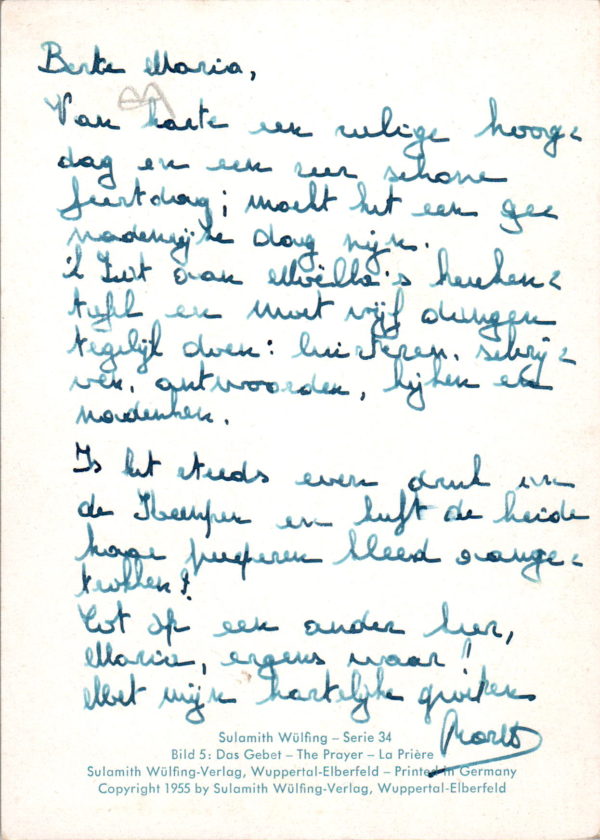 Beste Maria,
Van harte een zalige hoog=
dag en een zeer schone
feestdag; mocht het een ge=
nadenrijke dag zijn.
'k Zit aan Mvëlla's keuken=
tafel en moet vijf dingen
tegelijk doen: luisteren, schrij=
ven, antwoorden, kijken en
nadenken.
Is het steeds even druk in
de Kempen en heeft de heide
haar purperen kleed aange=
trokken?
Tot op een ander keer,
Maria, ergens waar!!
Met mijn hartelijke groeten
Sulamith Wülfing – Serie 34
Bild 5: Das Gebet – The Prayer – La Prière
Sulamith Wülfing-Verlag, Wuppertal-Elberfeld – Printed in Germany
Copyright 1955 by Sulamith Wülfing-Verlag, Wuppertal-Elberfeld